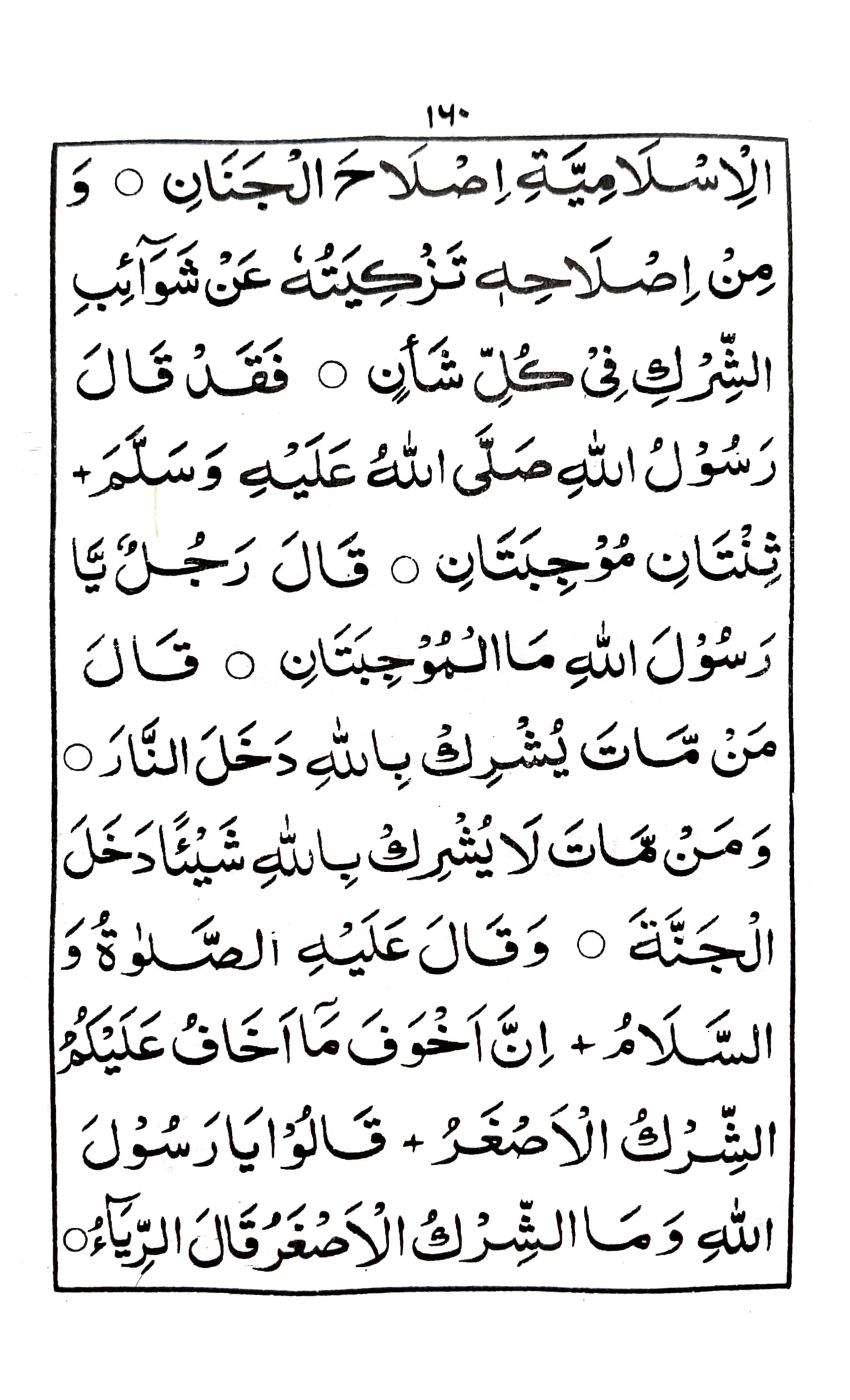 ۱۶۰
الْاِسْلَامِیَّةِ اِصْلَاحَ الْجَنَانِ ○ وَ
مِنْ اِصْلَاحِهٖ تَزْكِیَتُهٗ عَنْ شَوَآئِبِ
الشِّرْكِ فِیْ كُلِّ شَأْنٍ ○ فَقَدْ قَالَ
رَسُوْلُ اللهِ صَلَّی اللهُ عَلَیْهِ وَسَلَّمَ +
ثِنْتَانِ مُوْجِبَتَانِ ○ قَالَ رَجُلٌ یَّا
رَسُوْلَ اللهِ مَا الْمُوْجِبَتَانِ ○ قَالَ
مَنْ مَّاتَ یُشْرِكُ بِاللهِ دَخَلَ النَّارَ ○
وَمَنْ مَّاتَ لَا یُشْرِكُ بِاللهِ شَیْئًا دَخَلَ
الْجَنَّةَ ○ وَقَالَ عَلَیْهِ الصَّلٰوةُ وَ
السَّلَامُ + اِنَّ اَخْوَفَ مَآ اَخَافُ عَلَیْكُمُ
الشِّرْكُ الْاَصْغَرُ + قَالُوْا یَا رَسُوْلَ
اللهِ وَمَا الشِّرْكُ الْاَصْغَرُ قَالَ الرِّیَآءُ ○